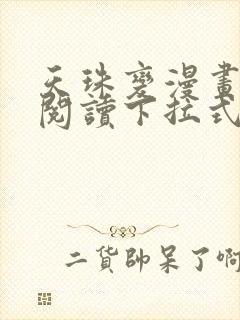 天珠變漫畫
閱讀下拉式
二貨帥呆了啊